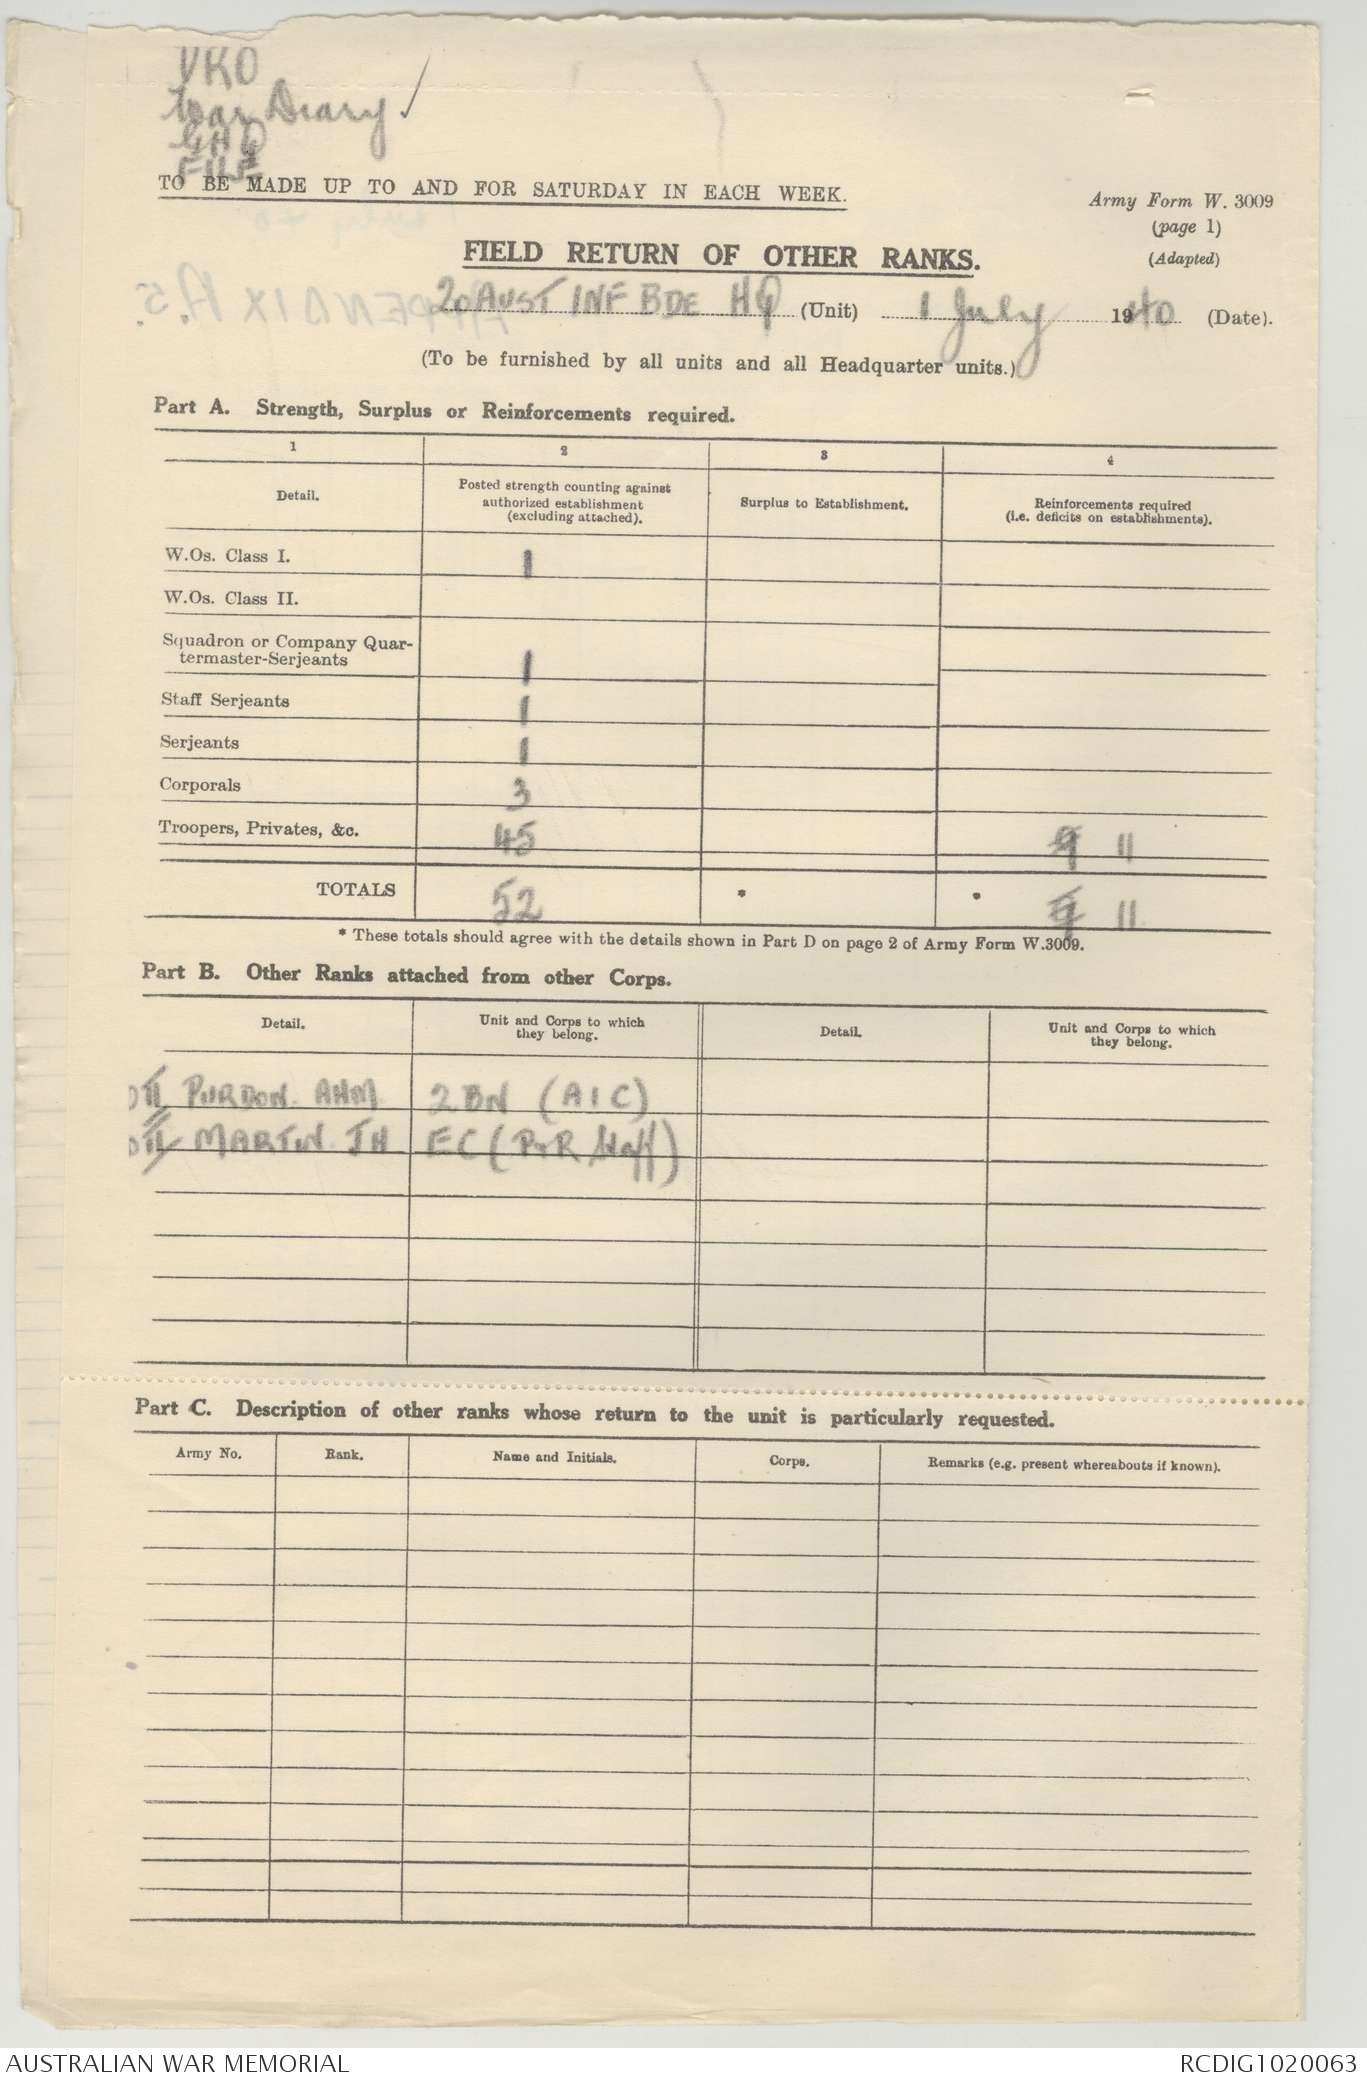 War Diary ✓
GHQ
FILE
TO BE MADE UP TO AND FOR SATURDAY IN EACH WEEK.
Army Form W. 3009
(page 1)
(Adapted)
FIELD RETURN OF OTHER RANKS.
APPENDIX A.5.
20 AUST INF BDE HQ (Unit) 1 July 1940 (Date).
(To be furnished by all units and all Headquarter units.)
Part A. Strength, Surplus or Reinforcements required.
1 2 3 4
Detail. Posted strength counting against authorized establishment (excluding attached). Surplus to Establishment. Reinforcements required (i.e. deficits on establishments).
W.Os. Class I. 1
W.Os. Class II.
Squadron or Company Quar-
termaster-Serjeants 1
Staff Serjeants 1
Serjeants 1
Corporals 3
Troopers, Privates, &c. 45 11
TOTALS 52 * * 11
* These totals should agree with the details shown in Part D on page 2 of Army Form W.3009.
Part B. Other Ranks attached from other Corps.
Detail. Unit and Corps to which they belong. Detail. Unit and Corps to which they belong.
OII PURDON. AHM 2 BN (AIC)
OII MARTIN JH EC (P&R Staff)
Part C. Description of other ranks whose return to the unit is particularly requested.
Army No. Rank. Name and Initials. Corps. Remarks (e.g. present whereabouts if known).
AUSTRALIAN WAR MEMORIAL
RCDIG1020063